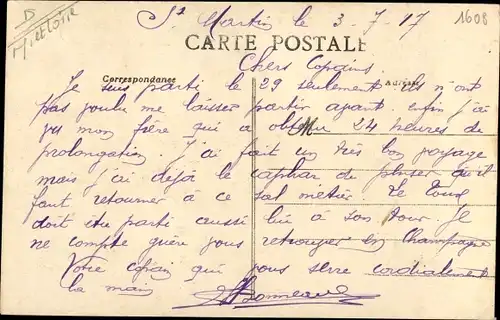 D
M et Loire
1608
St Martin le 3-7-17
CARTE POSTALE
Chers Copains
Correspondance
Adresse
Je suis parti le 29 seulement ils n'ont
pas voulu me laisser partir avant. enfin j'ai
vu mon frère qui a obtenu 24 heures de
prolongation. J'ai fait un très bon voyage
mais j'ai dejà le caphar de penser qu'il
faut retourner à ce sal métier. Le
doit être parti aussi lui à son tour. Je
ne compte guère vous retrouver en Champagne
Votre copain qui vous serre cordialement
la main
Bonneau